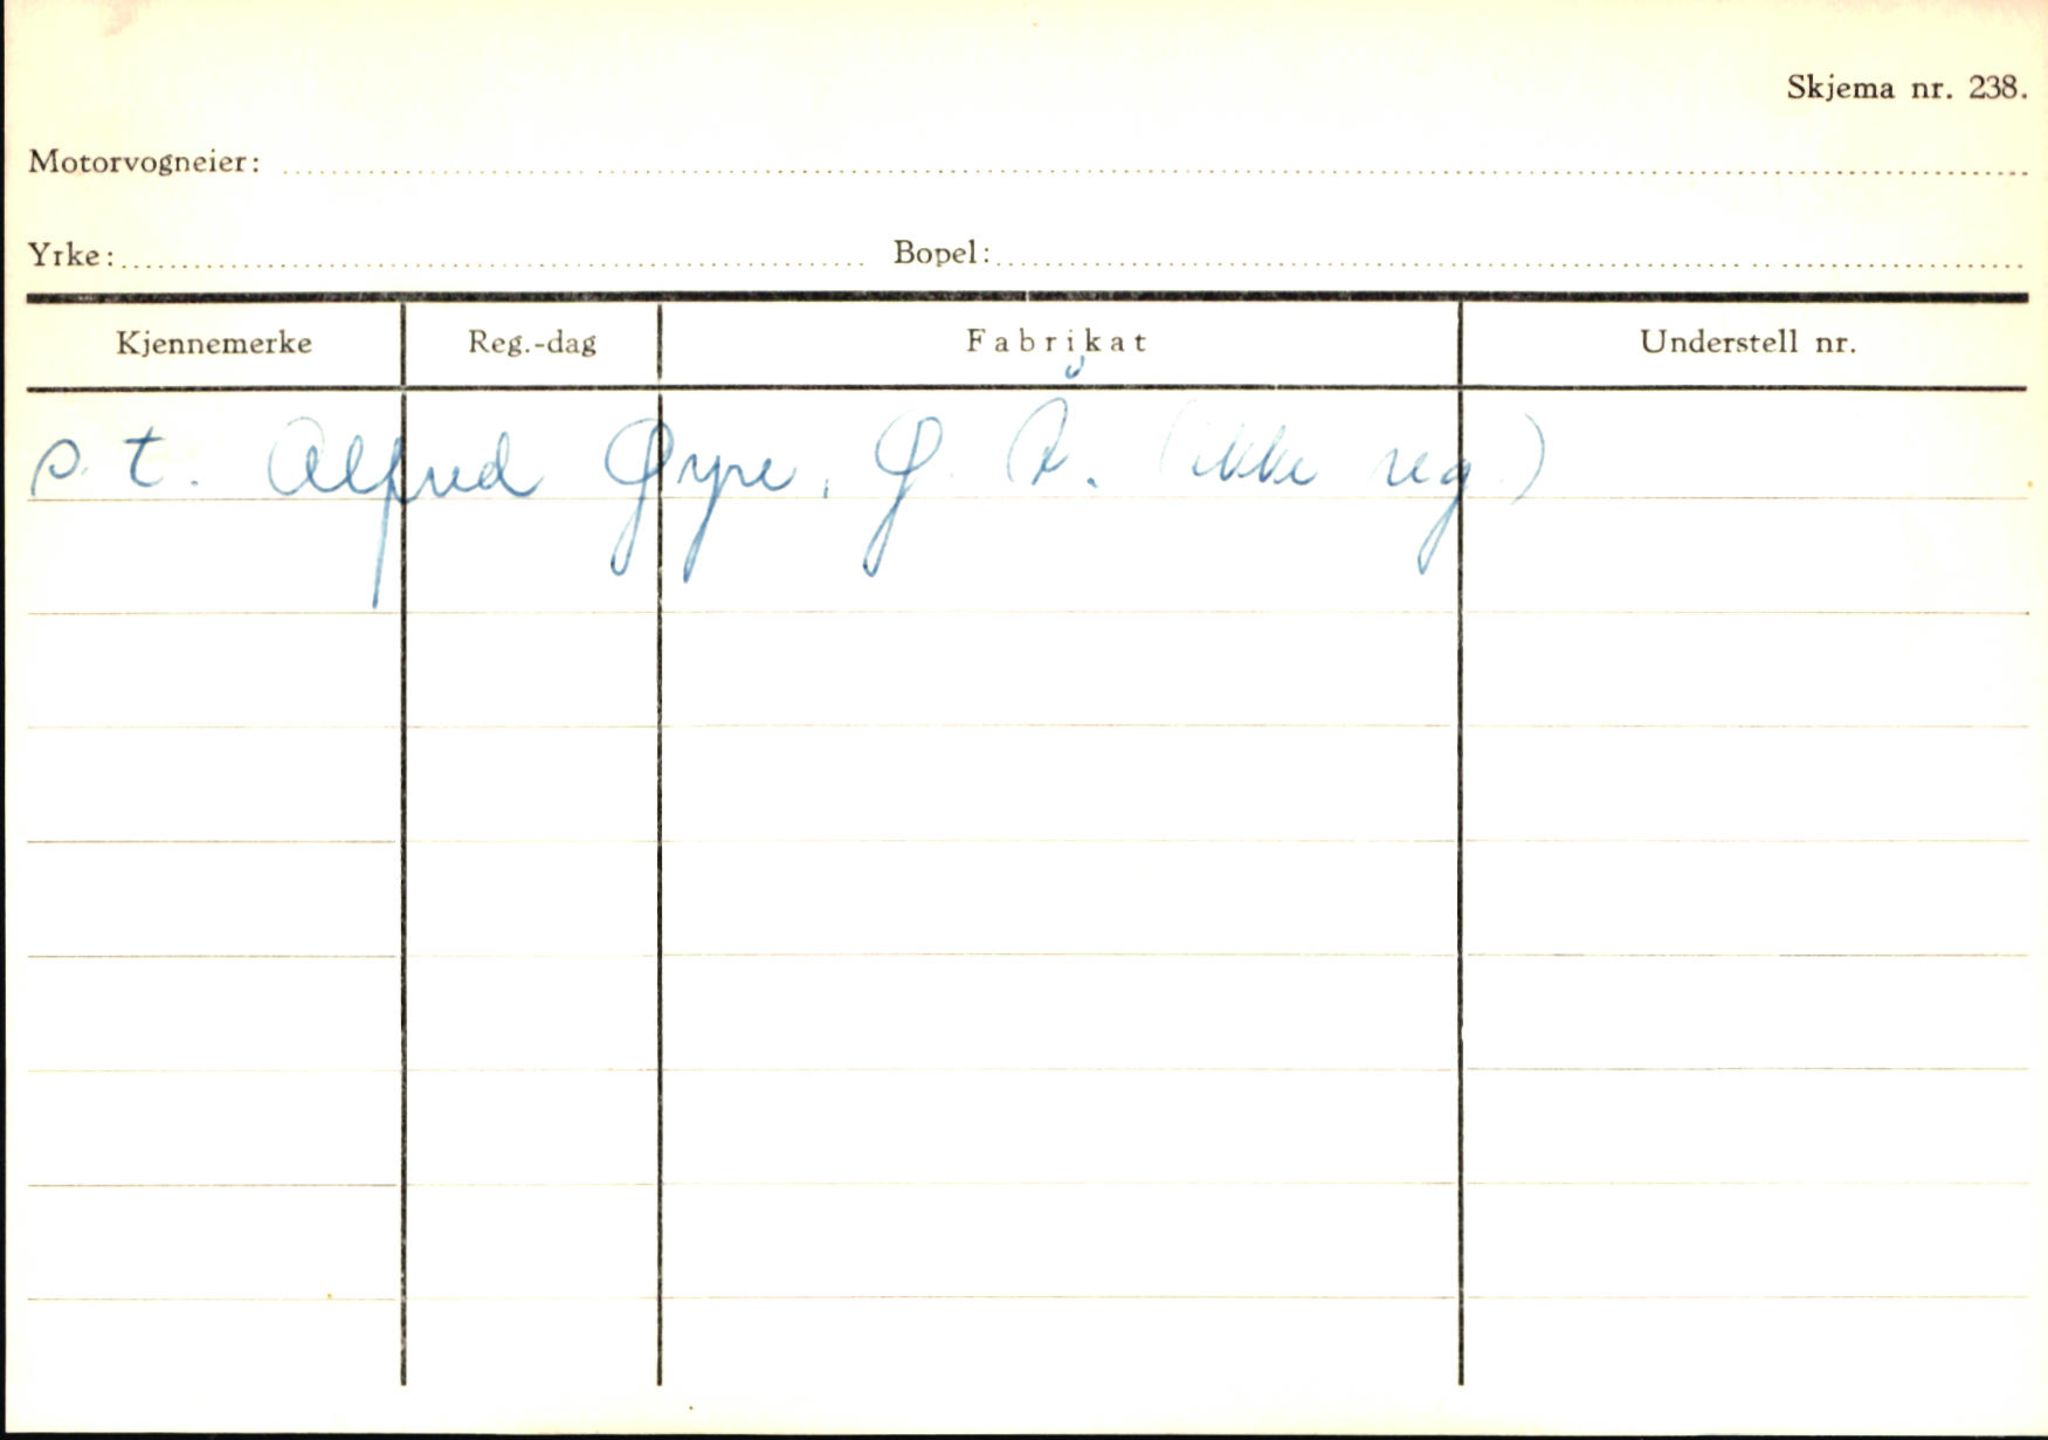 Skjema nr. 238.
Motorvogneier:
Yrke: Bopel:
Kjennemerke Reg.-dag Fabrikat Understell nr.
s. t. Alfred Øyre, Ø. Å. (ikke reg.)